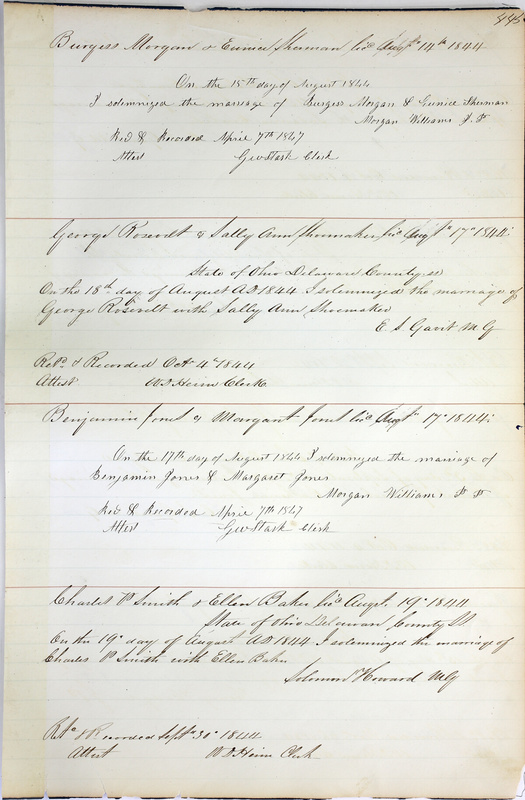 445
Burgess Morgan & Eunice Sherman lic Augt 14th 1844
On the 15th day of August 1844
I solemnized the marriage of Burgess Morgan & Eunice Sherman
Morgan Williams J. P
Recd & Recorded April 7th 1847
Attest Clerk
George Rosevelt & Sally Ann Shoemaker lic Augt 17th 1844
State of Ohio Delaware County ss
On the 18th day of August AD 1844 I solemnized the marriage of
George Rosevelt with Sally Ann Shoemaker
E S Gavit M G
Recd & Recorded Oct 4th 1844
Attest W D Heim Clerk
Benjamin Jones & Margaret Jones lic Augt 17th 1844
On the 17th day of August 1844 I solemnized the marriage of
Benjamin Jones & Margaret Jones
Morgan Williams J. P
Recd & Recorded April 7th 1847
Attest Clerk
Charles P Smith & Ellen Baker lic Augt. 19th 1844
State of Ohio Delaware County SS
On the 19th day of August AD 1844 I solemnized the marriage of
Charles P Smith with Ellen Baker
Solomon Howard MG
Recd & Recorded Sept 30th 1844
Attest W D Heim Clerk